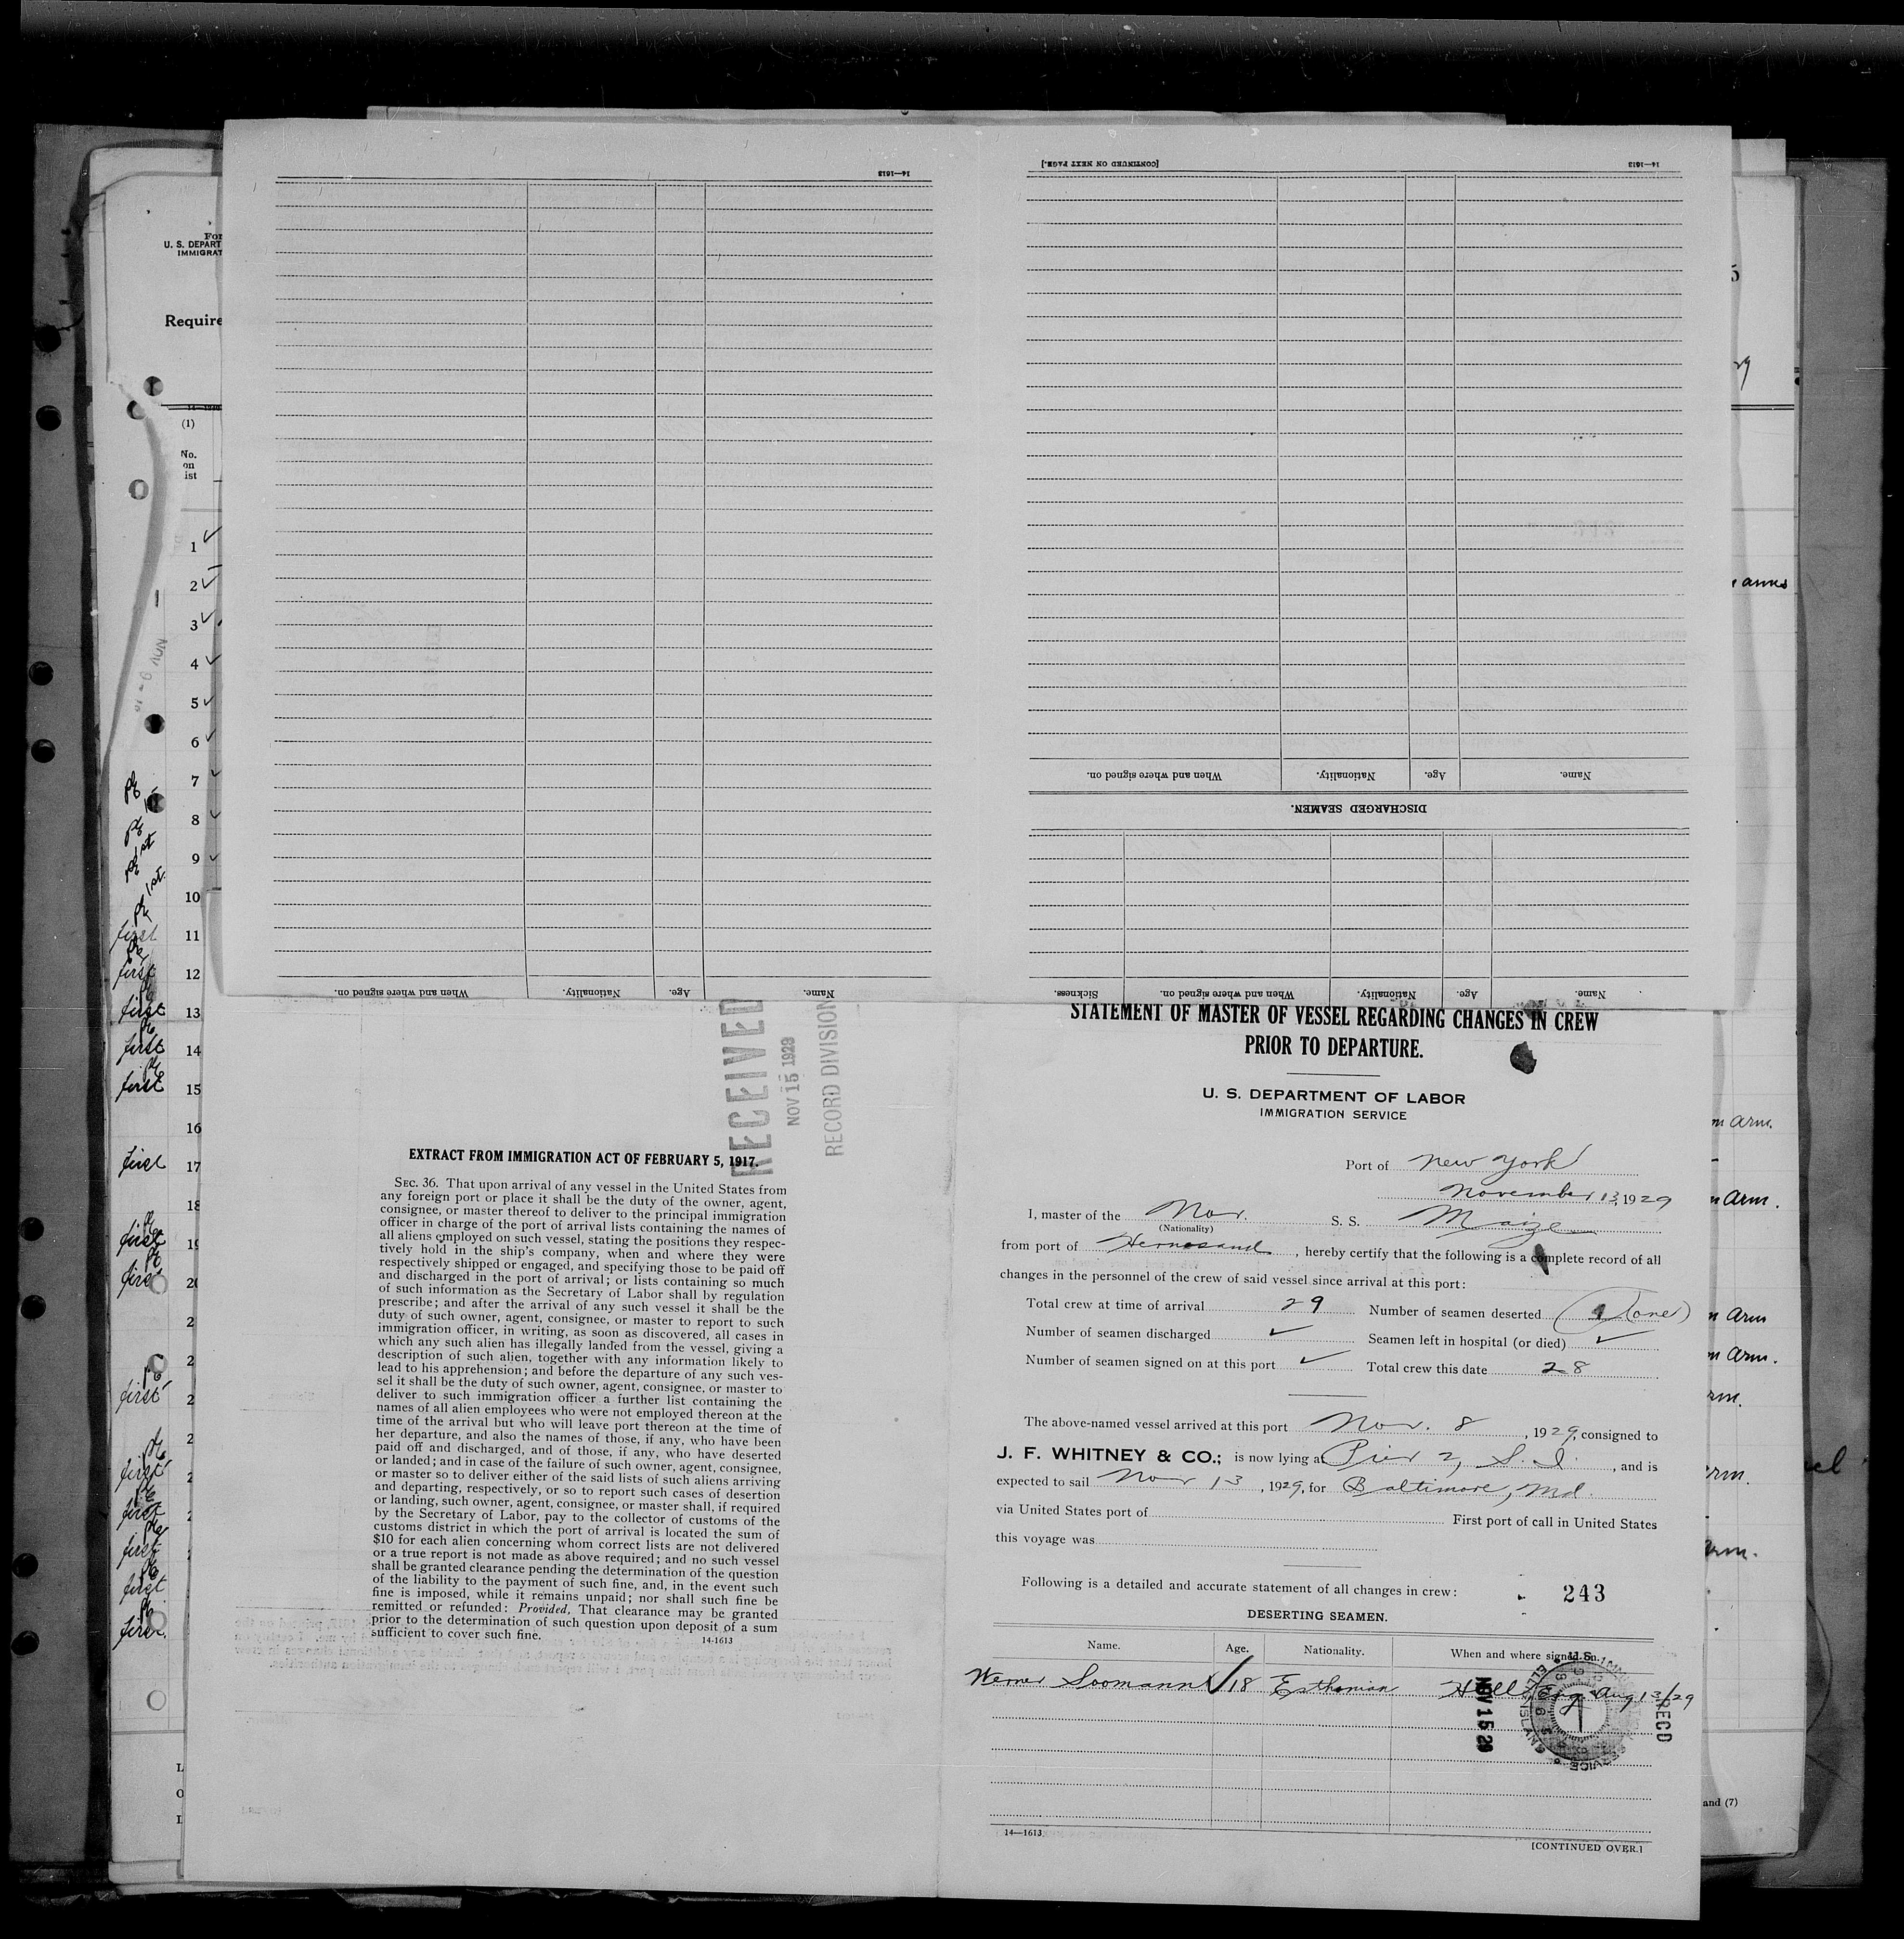 For
U. S. DEPART
IMMIGRAT
Require
(1)
No.
on
ist
1
2
3
4
5
6
7
8
9
10
11
12
13
14
15
16
17
18
first
first
first
first
first
first
first
first
first
first
first
first
first
14—1613
[CONTINUED ON NEXT PAGE.]
14—1613
When and where signed on.
Nationality.
Age.
Name.
DISCHARGED SEAMEN.
When and where signed on.
Nationality.
Age.
Name.
Sickness.
When and where signed on.
Nationality.
Age.
Name.
RECEIVED
NOV 15 1929
RECORD DIVISION
EXTRACT FROM IMMIGRATION ACT OF FEBRUARY 5, 1917.
SEC. 36. That upon arrival of any vessel in the United States from
any foreign port or place it shall be the duty of the owner, agent,
consignee, or master thereof to deliver to the principal immigration
officer in charge of the port of arrival lists containing the names of
all aliens employed on such vessel, stating the positions they respec-
tively hold in the ship's company, when and where they were
respectively shipped or engaged, and specifying those to be paid off
and discharged in the port of arrival; or lists containing so much
of such information as the Secretary of Labor shall by regulation
prescribe; and after the arrival of any such vessel it shall be the
duty of such owner, agent, consignee, or master to report to such
immigration officer, in writing, as soon as discovered, all cases in
which any such alien has illegally landed from the vessel, giving a
description of such alien, together with any information likely to
lead to his apprehension; and before the departure of any such ves-
sel it shall be the duty of such owner, agent, consignee, or master to
deliver to such immigration officer a further list containing the
names of all alien employees who were not employed thereon at the
time of the arrival but who will leave port thereon at the time of
her departure, and also the names of those, if any, who have been
paid off and discharged, and of those, if any, who have deserted
or landed; and in case of the failure of such owner, agent, consignee,
or master so to deliver either of the said lists of such aliens arriving
and departing, respectively, or so to report such cases of desertion
or landing, such owner, agent, consignee, or master shall, if required
by the Secretary of Labor, pay to the collector of customs of the
customs district in which the port of arrival is located the sum of
$10 for each alien concerning whom correct lists are not delivered
or a true report is not made as above required; and no such vessel
shall be granted clearance pending the determination of the question
of the liability to the payment of such fine, and, in the event such
fine is imposed, while it remains unpaid; nor shall such fine be
remitted or refunded: Provided, That clearance may be granted
prior to the determination of such question upon deposit of a sum
sufficient to cover such fine.
14-1613
STATEMENT OF MASTER OF VESSEL REGARDING CHANGES IN CREW
PRIOR TO DEPARTURE.
U. S. DEPARTMENT OF LABOR
IMMIGRATION SERVICE
Port of New York
November 13, 1929
I, master of the Nor. S. S. Maize
(Nationality)
from port of Hernosand, hereby certify that the following is a complete record of all
changes in the personnel of the crew of said vessel since arrival at this port:
Total crew at time of arrival 29 Number of seamen deserted 1 (one)
Number of seamen discharged ✓ Seamen left in hospital (or died) ✓
Number of seamen signed on at this port ✓ Total crew this date 28
The above-named vessel arrived at this port Nov. 8, 1929, consigned to
J. F. WHITNEY & CO.; is now lying at Pier 2, S. I., and is
expected to sail Nov 13, 1929, for Baltimore, Md.
via United States port of First port of call in United States
this voyage was
Following is a detailed and accurate statement of all changes in crew:
243
DESERTING SEAMEN.
Name. Age. Nationality. When and where signed on.
Werner Soomann ✓ 18 Esthonian Hull Eng. Aug 13/29
NOV 15 29
REC'D
14—1613
[CONTINUED OVER.]
arms
arm.
arm.
arm
arm.
rm.
rm.
arm.
and (7)